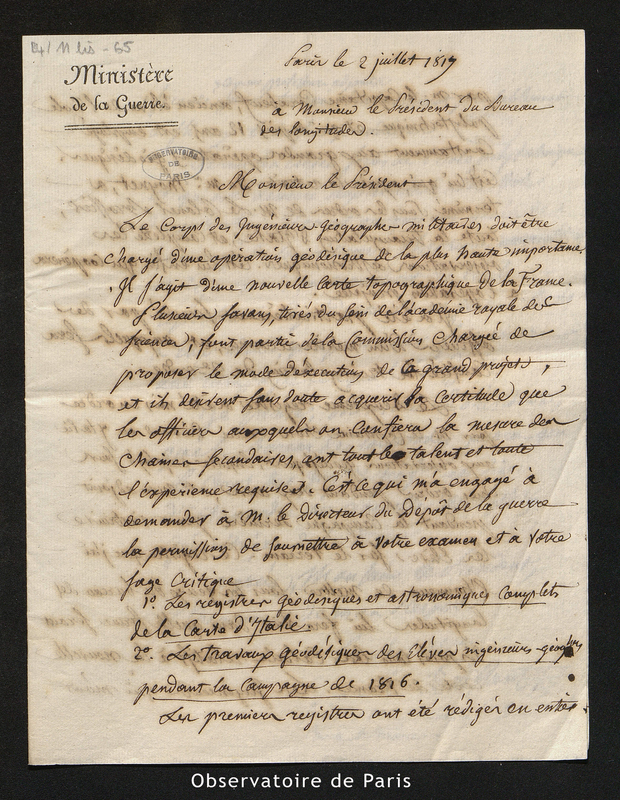 14/11 bis - 65
Ministère
de la Guerre.
Paris le 2 juillet 1817
à Monsieur le Président du Bureau
des longitudes.
OBSERVATOIRE
DE
PARIS
Monsieur le Président
Le Corps des Ingénieurs-Géographes militaires doit être
chargé d'une opération géodésique de la plus haute importance.
Il s'agit d'une nouvelle carte topographique de la France.
Plusieurs savans, tirés du sein de l'académie royale des
sciences, font partie de la Commission chargée de
proposer le mode d'exécution de ce grand projet,
et ils désirent sans doute acquérir la certitude que
les officiers auxquels on confiera la mesure des
chaînes secondaires, ont tout le talent et toute
l'expérience requises. C'est ce qui m'a engagé à
demander à M. le Directeur du Dépôt de la guerre
la permission de soumettre à votre examen et à votre
sage critique
1º. Les registres géodésiques et astronomiques complets
de la Carte d'Italie
2º. Les travaux géodésiques des Elèves ingénieurs-géographes
pendant la Campagne de 1816.
Les premiers registres ont été rédigés en entier
Observatoire de Paris